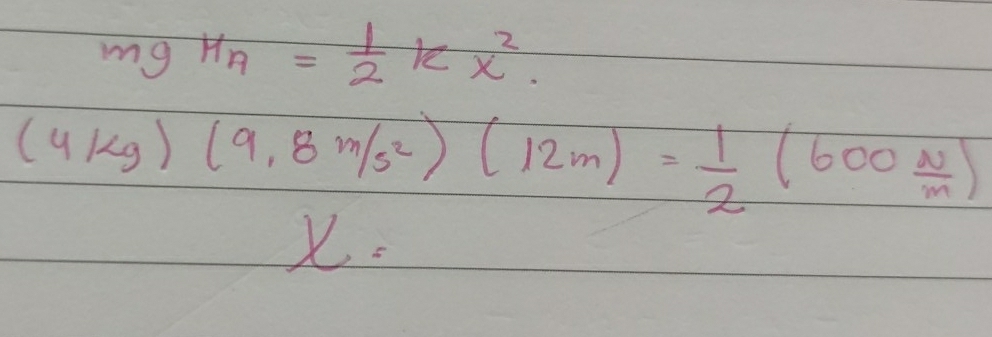 mg HA = 1/2 k x².
(4 kg) (9,8 m/s²) (12m) = 1/2 (600 N/m)
X =